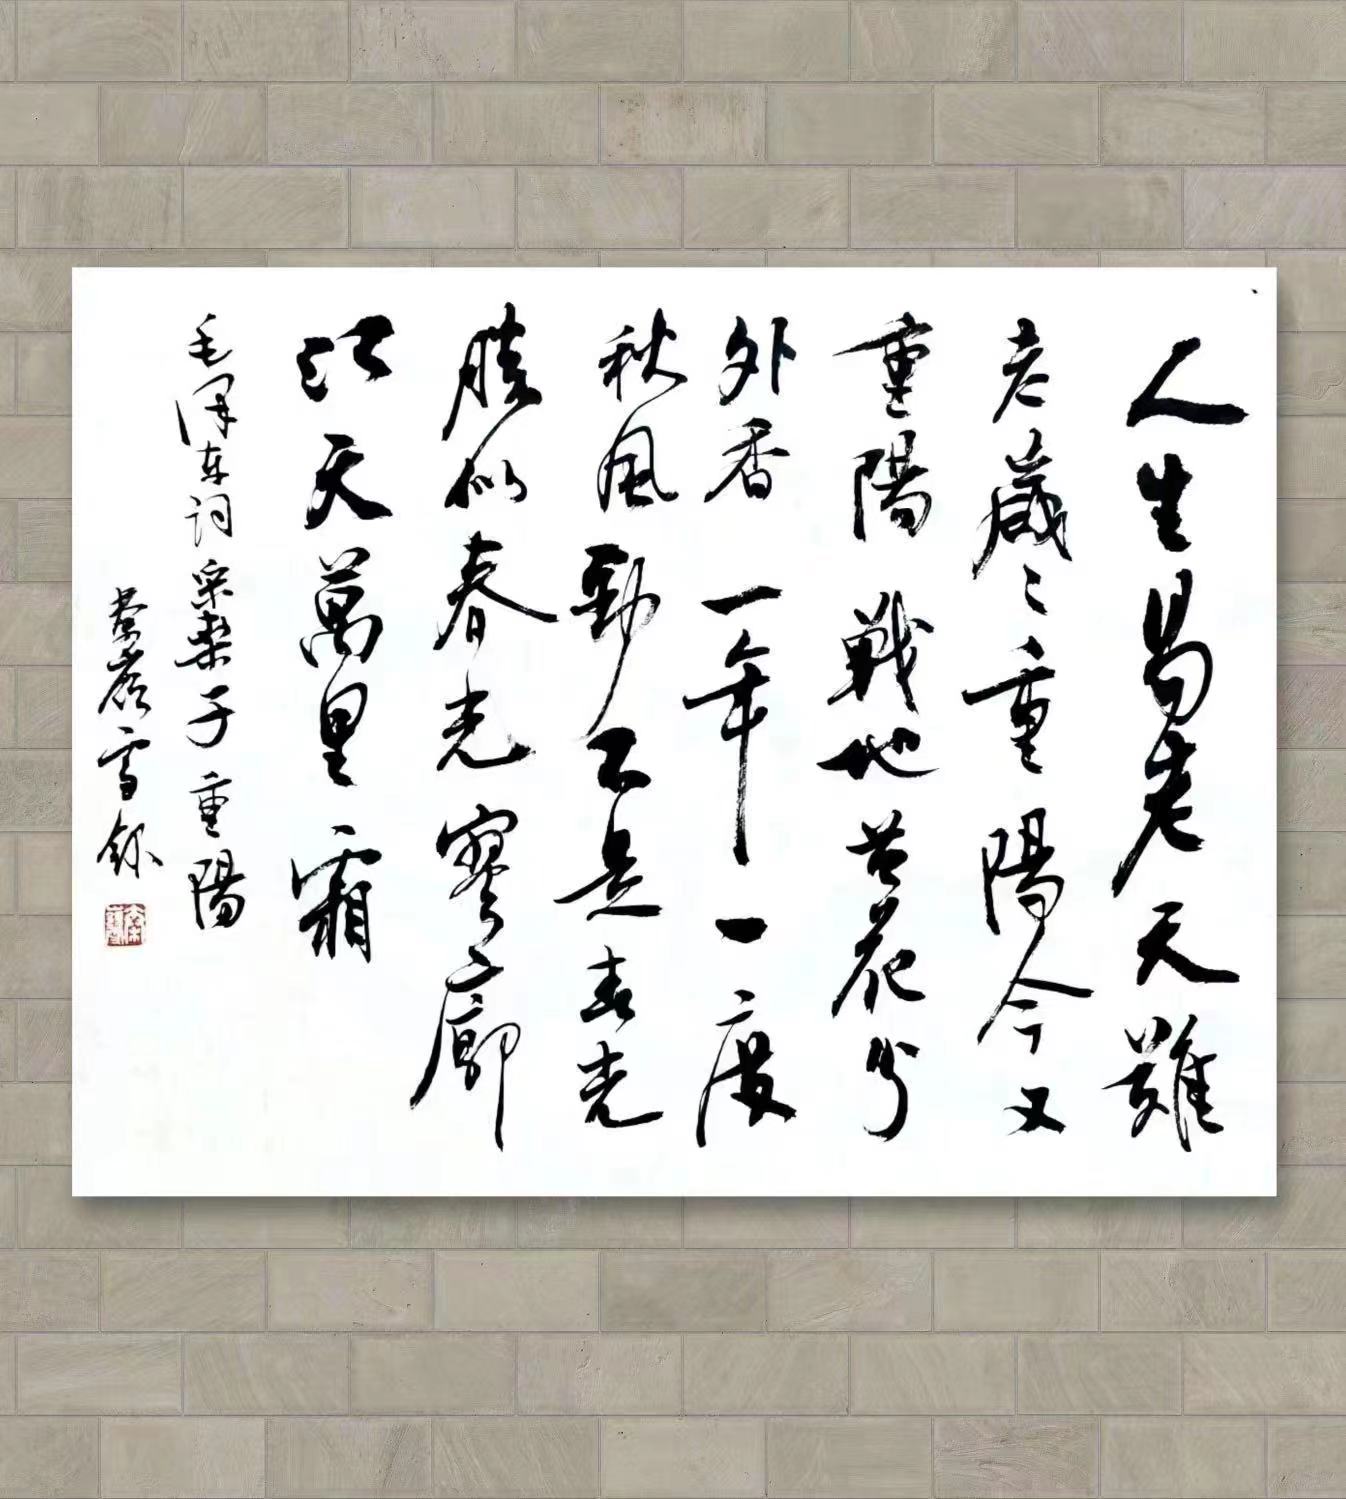 人生易老天難
老歲々重陽今又
重陽戰地黄花分
外香一年一度
秋風勁不是春光
勝似春光寥廓
江天萬里霜
毛澤東詞采桑子重陽
雪